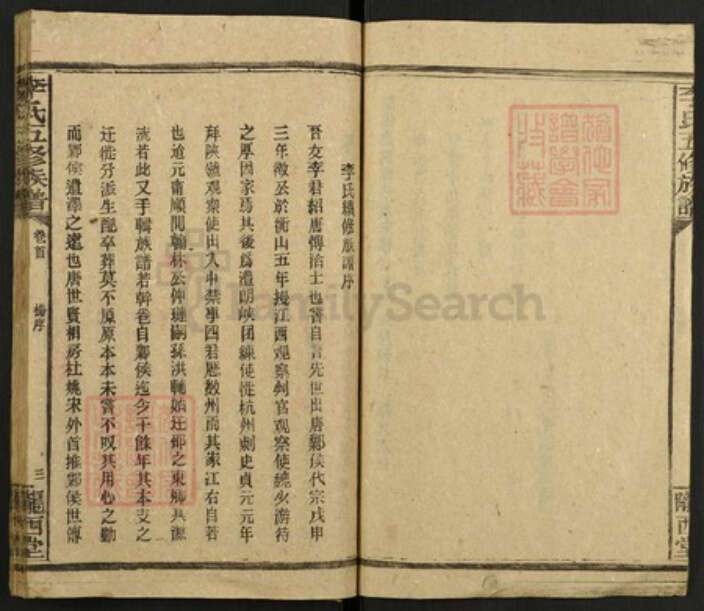 李氏五修族譜
隴西堂
李氏續修族譜序
吾友李君紹唐博洽士也嘗自言先世出唐鄴侯代宗戊申
三年徵泌於衡山五年授江西觀察判官觀察使魏少游符
之厚因家焉其後為澧朗峽团練使徙杭州刺史貞元元年
拜陝虢觀察使出入中禁事四君歷數州而其家江右自若
也逾元甯順間翰林公仲璉嗣孫洪輔始迁鄉之東鄉其源
流若此又手輯族譜若幹卷自鄴侯迄今千餘年其本支之
迁徙分派生配卒葬莫不原原本本未嘗不叹其用心之勤
而鄴侯遺澤之遠也唐世賢相房杜姚宋外首推鄴侯世傳
李氏五修族譜
卷首
楊序
三
隴西堂
FamilySearch